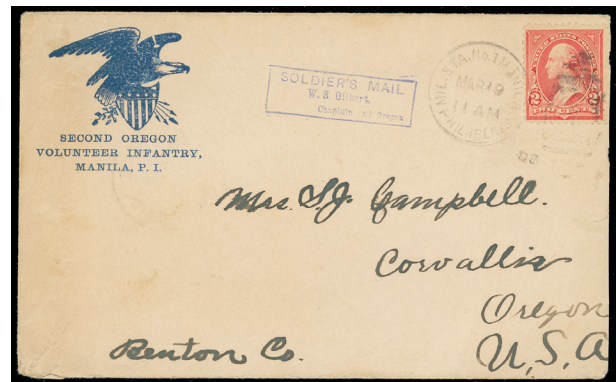 SECOND OREGON
VOLUNTEER INFANTRY,
MANILA, P. I.
SOLDIER'S MAIL
W. S. Gilbert,
Chaplain 2d Oregon
MIL. STA. No. 1 MANILA
MAR 19
11 AM
PHIL. ISL'DS
2 2
Mrs. S. J. Campbell.
Corvallis
Oregon
U. S. A
Benton Co.